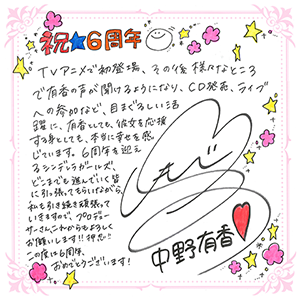 祝★6周年
TVアニメで初登場、その後様々なところ
で有香の声が聞けるようになり、CD発売、ライブ
への参加など、目まぐるしい活
躍に、有香としても、彼女を応援
する身としても、本当に幸せを感
じています。6周年を迎え
るシンデレラガールズ、
どこまでも進んでいく皆
に引っ張ってもらいながら、
私も引き続き頑張って
いきますので、プロデュー
サーさん、これからもよろしく
お願いします!!押忍!!
この度は6周年、
おめでとうございます!
中野有香